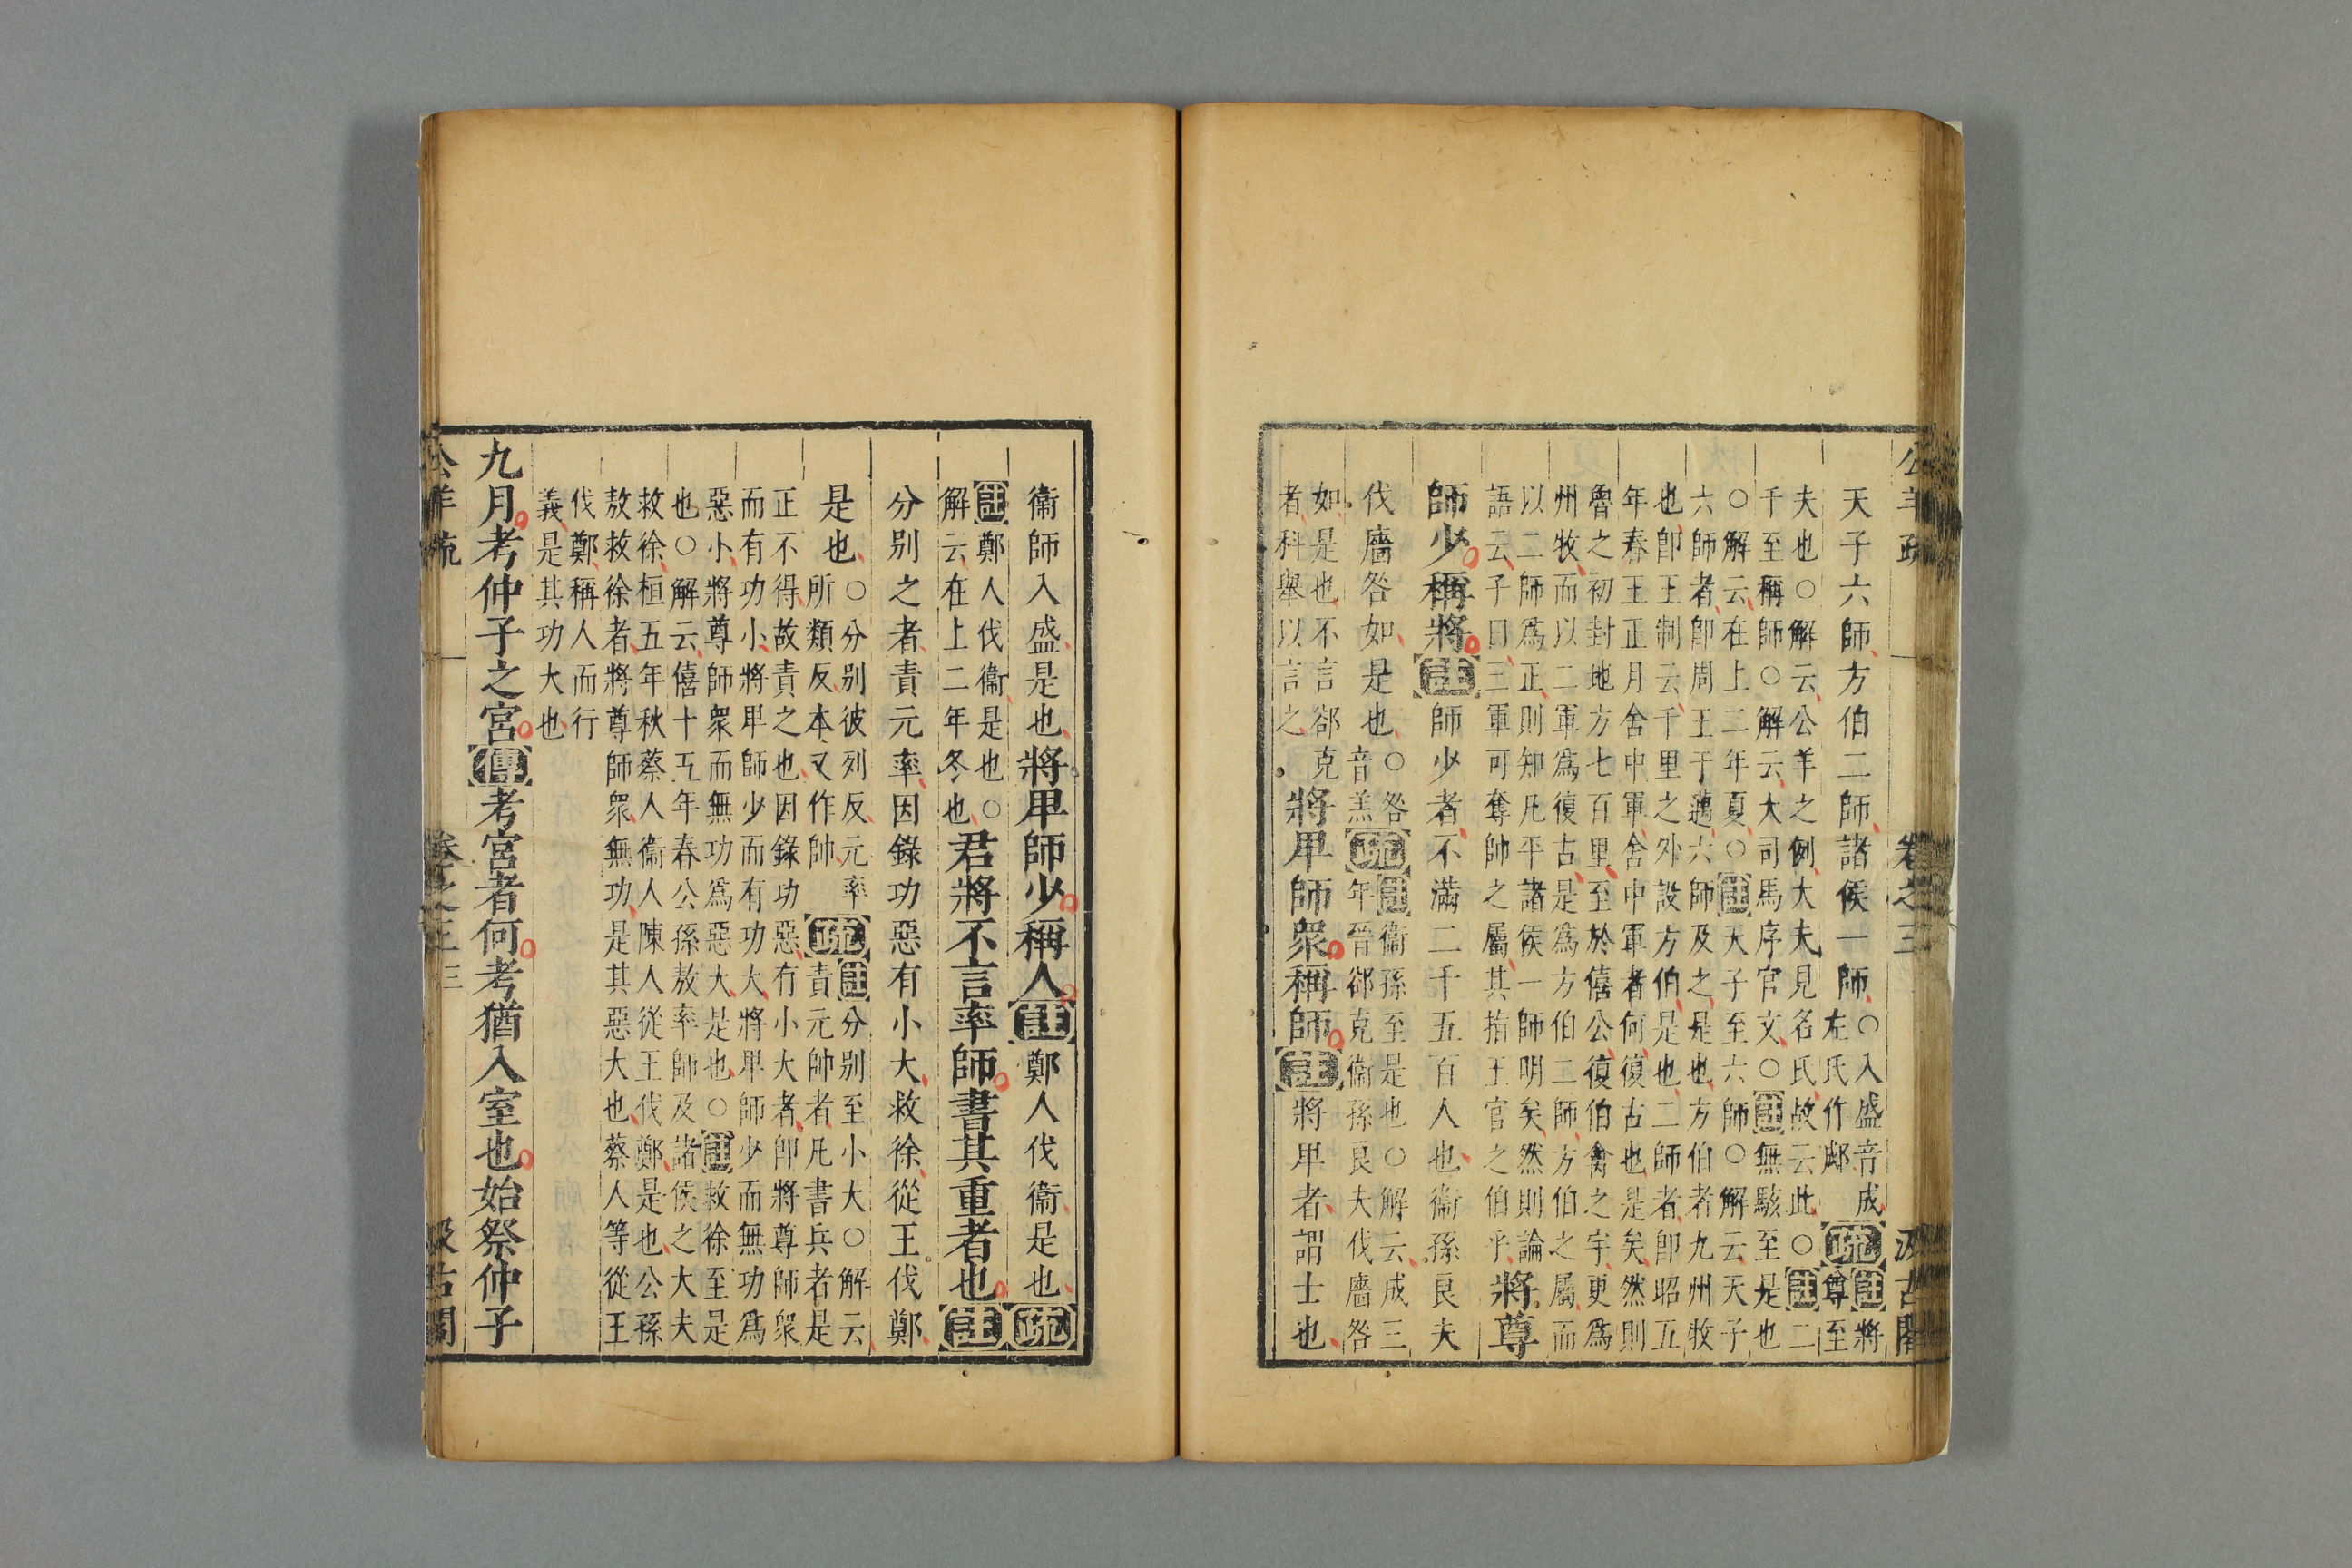 公羊疏 卷之三 汲古閣
天子六師方伯二師諸侯一師
○入盛音成
左氏作郕
疏
註將
尊至
夫也○解云公羊之例大夫見名氏故云此○註二
千至稱師○解云大司馬序官文○註無駭至是也
○解云在上二年夏○註天子至六師○解云天子
六師者卽周王于邁六師及之是也方伯者九州牧
也卽王制云千里之外設方伯是也二師者卽昭五
年春王正月舍中軍舍中軍者何復古也是矣然則
魯之初封地方七百里至於僖公復伯禽之宇更爲
州牧而以二軍爲復古是爲方伯二師方伯之屬而
以二師爲正則知凡平諸侯一師明矣然則論
語云子曰三軍可奪帥之屬其指王官之伯乎
將尊
師少稱將註師少者不滿二千五百人也衞孫良夫
伐廧咎如是也
○咎
音羔
疏
註衞孫至是也○解云成三
年晉郤克衞孫良夫伐廧咎
如是也不言郤克
者科舉以言之
將卑師衆稱師註將卑者謂士也
衞師入盛是也將卑師少稱人註鄭人伐衞是也疏
註鄭人伐衞是也○
解云在上二年冬也
君將不言率師書其重者也註
分别之者責元率因錄功惡有小大救徐從王伐鄭
是也
○分别彼列反元率
所類反本又作帥
疏
註分别至小大○解云
責元帥者凡書兵者是
正不得故責之也因錄功惡有小大者卽將尊師衆
而有功小將卑師少而有功大將卑師少而無功爲
惡小將尊師衆而無功爲惡大是也○註救徐至是
也○解云僖十五年春公孫敖率師及諸侯之大夫
救徐桓五年秋蔡人衞人陳人從王伐鄭是也公孫
敖救徐者將尊師衆無功是其惡大也蔡人等從王
伐鄭稱人而行
義是其功大也
九月考仲子之宮傳考宮者何考猶入室也始祭仲子
公羊疏 卷之三 三 汲古閣